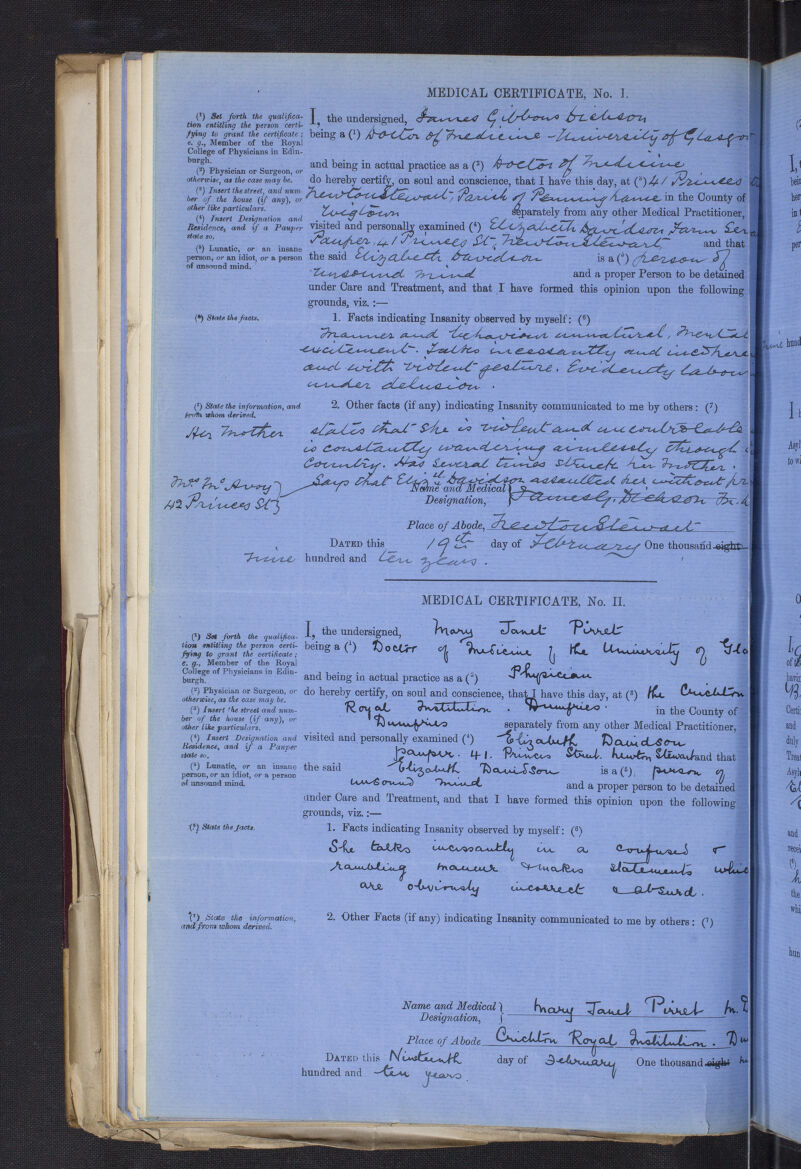 MEDICAL CERTIFICATE, No. I.
(¹) Set forth the qualifica-
tion entitling the person certi-
fying to grant the certificate;
e. g., Member of the Royal
College of Physicians in Edin-
burgh.
(²) Physician or Surgeon, or
otherwise, as the case may be.
(³) Insert the street, and num-
ber of the house (if any), or
other like particulars.
(⁴) Insert Designation and
Residence, and if a Pauper
state so.
(⁵) Lunatic, or an insane
person, or an idiot, or a person
of unsound mind.
I, the undersigned, James Gibbons Dickson
being a (¹) Doctor of Medicine - University of Glasgow
and being in actual practice as a (²) Doctor of Medicine
do hereby certify, on soul and conscience, that I have this day, at (³) 41 Princes
Newton Stewart, Parish of Penninghame in the County of
Wigtown separately from any other Medical Practitioner,
visited and personally examined (⁴) Elizabeth Davidson Farm Ser
Pauper, 41 Princes St, Newton Stewart and that
the said Elizabeth Davidson is a (⁵) person of
unsound mind and a proper Person to be detained
under Care and Treatment, and that I have formed this opinion upon the following
grounds, viz. :—
(⁶) State the facts.
1. Facts indicating Insanity observed by myself: (⁶)
Manner and behaviour unnatural, Mental
excitement. Talks incessantly and incohere
and with violent gesture. Evidently labour
under delusion.
(⁷) State the information, and
from whom derived.
2. Other facts (if any) indicating Insanity communicated to me by others: (⁷)
Her Mother states that she is violent and uncontrolable
is constantly wandering aimlessly through
Country. Has several times struck her mother.
Mrs McAvoy 42 Princes St
Says that Elizth Davidson assaulted her without pr
Name and Medical Designation, James G. Dickson M.
Place of Abode, Newton Stewart
DATED this 19th day of February One thousand eight
nine hundred and ten years.
MEDICAL CERTIFICATE, No. II.
(¹) Set forth the qualifica-
tion entitling the person certi-
fying to grant the certificate;
e. g., Member of the Royal
College of Physicians in Edin-
burgh.
(²) Physician or Surgeon, or
otherwise, as the case may be.
(³) Insert the street and num-
ber of the house (if any), or
other like particulars.
(⁴) Insert Designation and
Residence, and if a Pauper
state so.
(⁵) Lunatic, or an insane
person, or an idiot, or a person
of unsound mind.
I, the undersigned, Mary Janet Pirret
being a (¹) Doctor of Medicine of the University of Gla
and being in actual practice as a (²) Physician
do hereby certify, on soul and conscience, that I have this day, at (³) the Crichton
Royal Institution. Dumfries. in the County of
Dumfries separately from any other Medical Practitioner,
visited and personally examined (⁴) Elizabeth Davidson
pauper. 41. Princes Street. Newton Stewart and that
the said Elizabeth Davidson is a (⁵) person of
unsound mind and a proper person to be detained
under Care and Treatment, and that I have formed this opinion upon the following
grounds, viz. :—
(⁶) State the facts.
1. Facts indicating Insanity observed by myself: (⁶)
She talks incessantly in a confused &
rambling manner & makes statements whic
are obviously incorrect & absurd.
(⁷) State the information,
and from whom derived.
2. Other Facts (if any) indicating Insanity communicated to me by others: (⁷)
Name and Medical Designation, Mary Janet Pirret M.D
Place of Abode Crichton Royal Institution. Du
DATED this Nineteenth day of February One thousand eight
hundred and ten years.